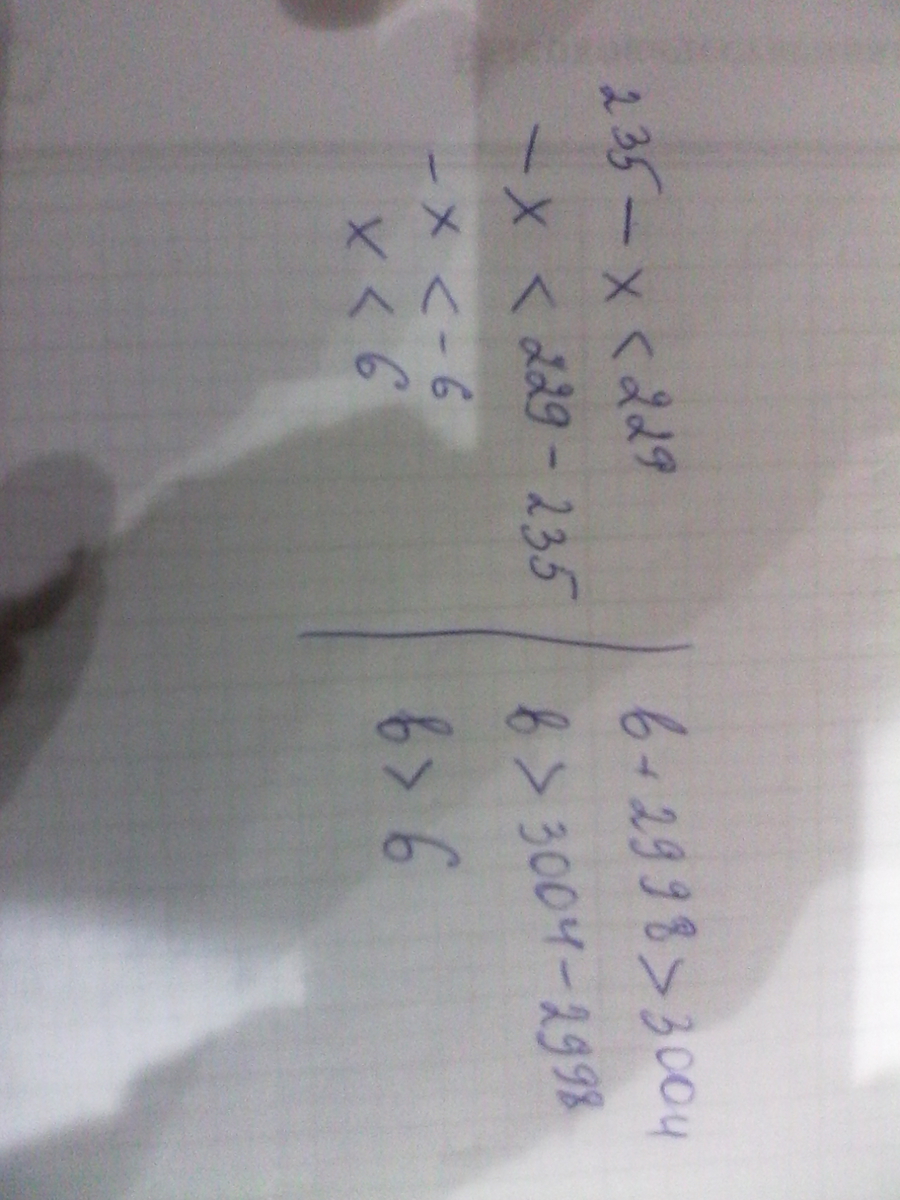 235 - x < 229
- x < 229 - 235
- x < -6
x < 6
b + 2998 > 3004
b > 3004 - 2998
b > 6